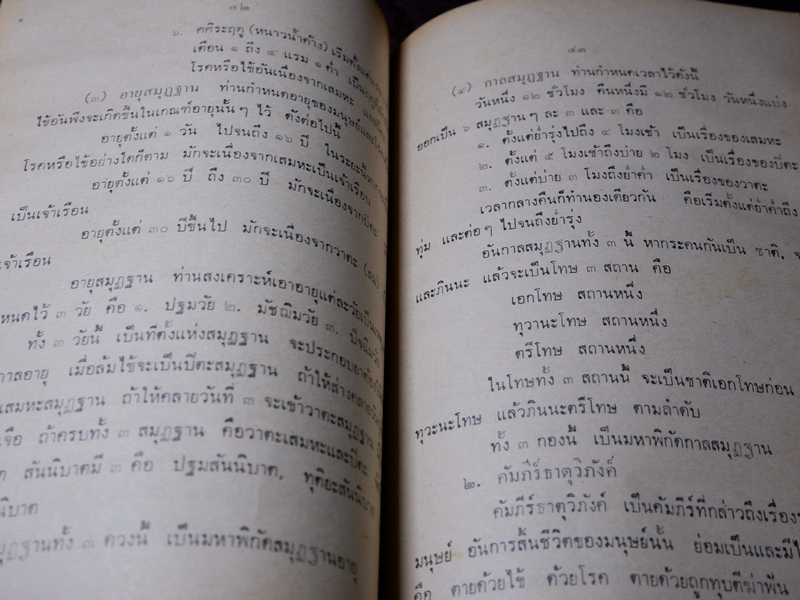 ๔๒
๖. ศศิระฤดู (หนาวน้ำค้าง) เริ่มตั้งแต่
เดือน ๑ ถึง ๔ แรม ๑ ค่ำ เป็น
โรคหรือไข้อันเนื่องจากเสมหะ
(๓) อายุสมุฏฐาน ท่านกำหนดอายุของมนุษย์
ไข้อันพึงจะเกิดขึ้นในเกณฑ์อายุนั้นๆ ไว้ ดังต่อไปนี้
อายุตั้งแต่ ๑ วัน ไปจนถึง ๑๖ ปี ในระยะ
โรคหรือไข้อย่างใดก็ตาม มักจะเนื่องจากเสมหะเป็นเจ้าเรือน
อายุตั้งแต่ ๑๖ ปี ถึง ๓๐ ปี มักจะเนื่องจากปิตะ
เป็นเจ้าเรือน
อายุตั้งแต่ ๓๐ ปีขึ้นไป มักจะเนื่องจากวาตะ (ลม)
เจ้าเรือน
อายุสมุฏฐาน ท่านสงเคราะห์เอาอายุแต่ละวัย
หนดไว้ ๓ วัย คือ ๑. ปฐมวัย ๒. มัชฌิมวัย ๓. ปัจฉิมวัย
ทั้ง ๓ วัยนี้ เป็นที่ตั้งแห่งสมุฏฐาน จะประกอบ
กาลอายุ เมื่อล้มไข้จะเป็นปิตะสมุฏฐาน ถ้าให้
เสมหะสมุฏฐาน ถ้าให้คลายวันที่ ๓ จะเข้าวาตะสมุฏฐาน
เจือ ถ้าครบทั้ง ๓ สมุฏฐาน คือวาตะเสมหะและปิตะ
๓ สันนิบาตมี ๓ คือ ปฐมสันนิบาต, ทุติยะสันนิบาต
นิบาต
มุฏฐานทั้ง ๓ ดวงนี้ เป็นมหาพิกัดสมุฏฐานอายุ
๔๓
(๔) กาลสมุฏฐาน ท่านกำหนดเวลาไว้ดังนี้
วันหนึ่ง ๑๒ ชั่วโมง คืนหนึ่งมี ๑๒ ชั่วโมง วันหนึ่งแบ่ง
ออกเป็น ๖ สมุฏฐานๆ ละ ๓ และ ๓ คือ
๑. ตั้งแต่ย่ำรุ่งไปถึง ๔ โมงเช้า เป็นเรื่องของเสมหะ
๒. ตั้งแต่ ๕ โมงเช้าถึงบ่าย ๒ โมง เป็นเรื่องของปิตะ
๓. ตั้งแต่บ่าย ๓ โมงถึงย่ำค่ำ เป็นเรื่องของวาตะ
เวลากลางคืนก็ทำนองเดียวกัน คือเริ่มตั้งแต่ย่ำค่ำถึง
ทุ่ม และต่อๆ ไปจนถึงย่ำรุ่ง
อันกาลสมุฏฐานทั้ง ๓ นี้ หากระคนกันเป็น ชาติ,
และภินนะ แล้วจะเป็นโทษ ๓ สถาน คือ
เอกโทษ สถานหนึ่ง
ทุวานะโทษ สถานหนึ่ง
ตรีโทษ สถานหนึ่ง
ในโทษทั้ง ๓ สถานนี้ จะเป็นชาติเอกโทษก่อน
ทุวะนะโทษ แล้วภินนะตรีโทษ ตามลำดับ
ทั้ง ๓ กองนี้ เป็นมหาพิกัดกาลสมุฏฐาน
๒. คัมภีร์ธาตุวิภังค์
คัมภีร์ธาตุวิภังค์ เป็นคัมภีร์ที่กล่าวถึงเรื่อง
มนุษย์ อันการสิ้นชีวิตของมนุษย์นั้น ย่อมเป็นและมี
คือ ตายด้วยไข้ ด้วยโรค ตายด้วยถูกทุบตีฆ่าฟัน